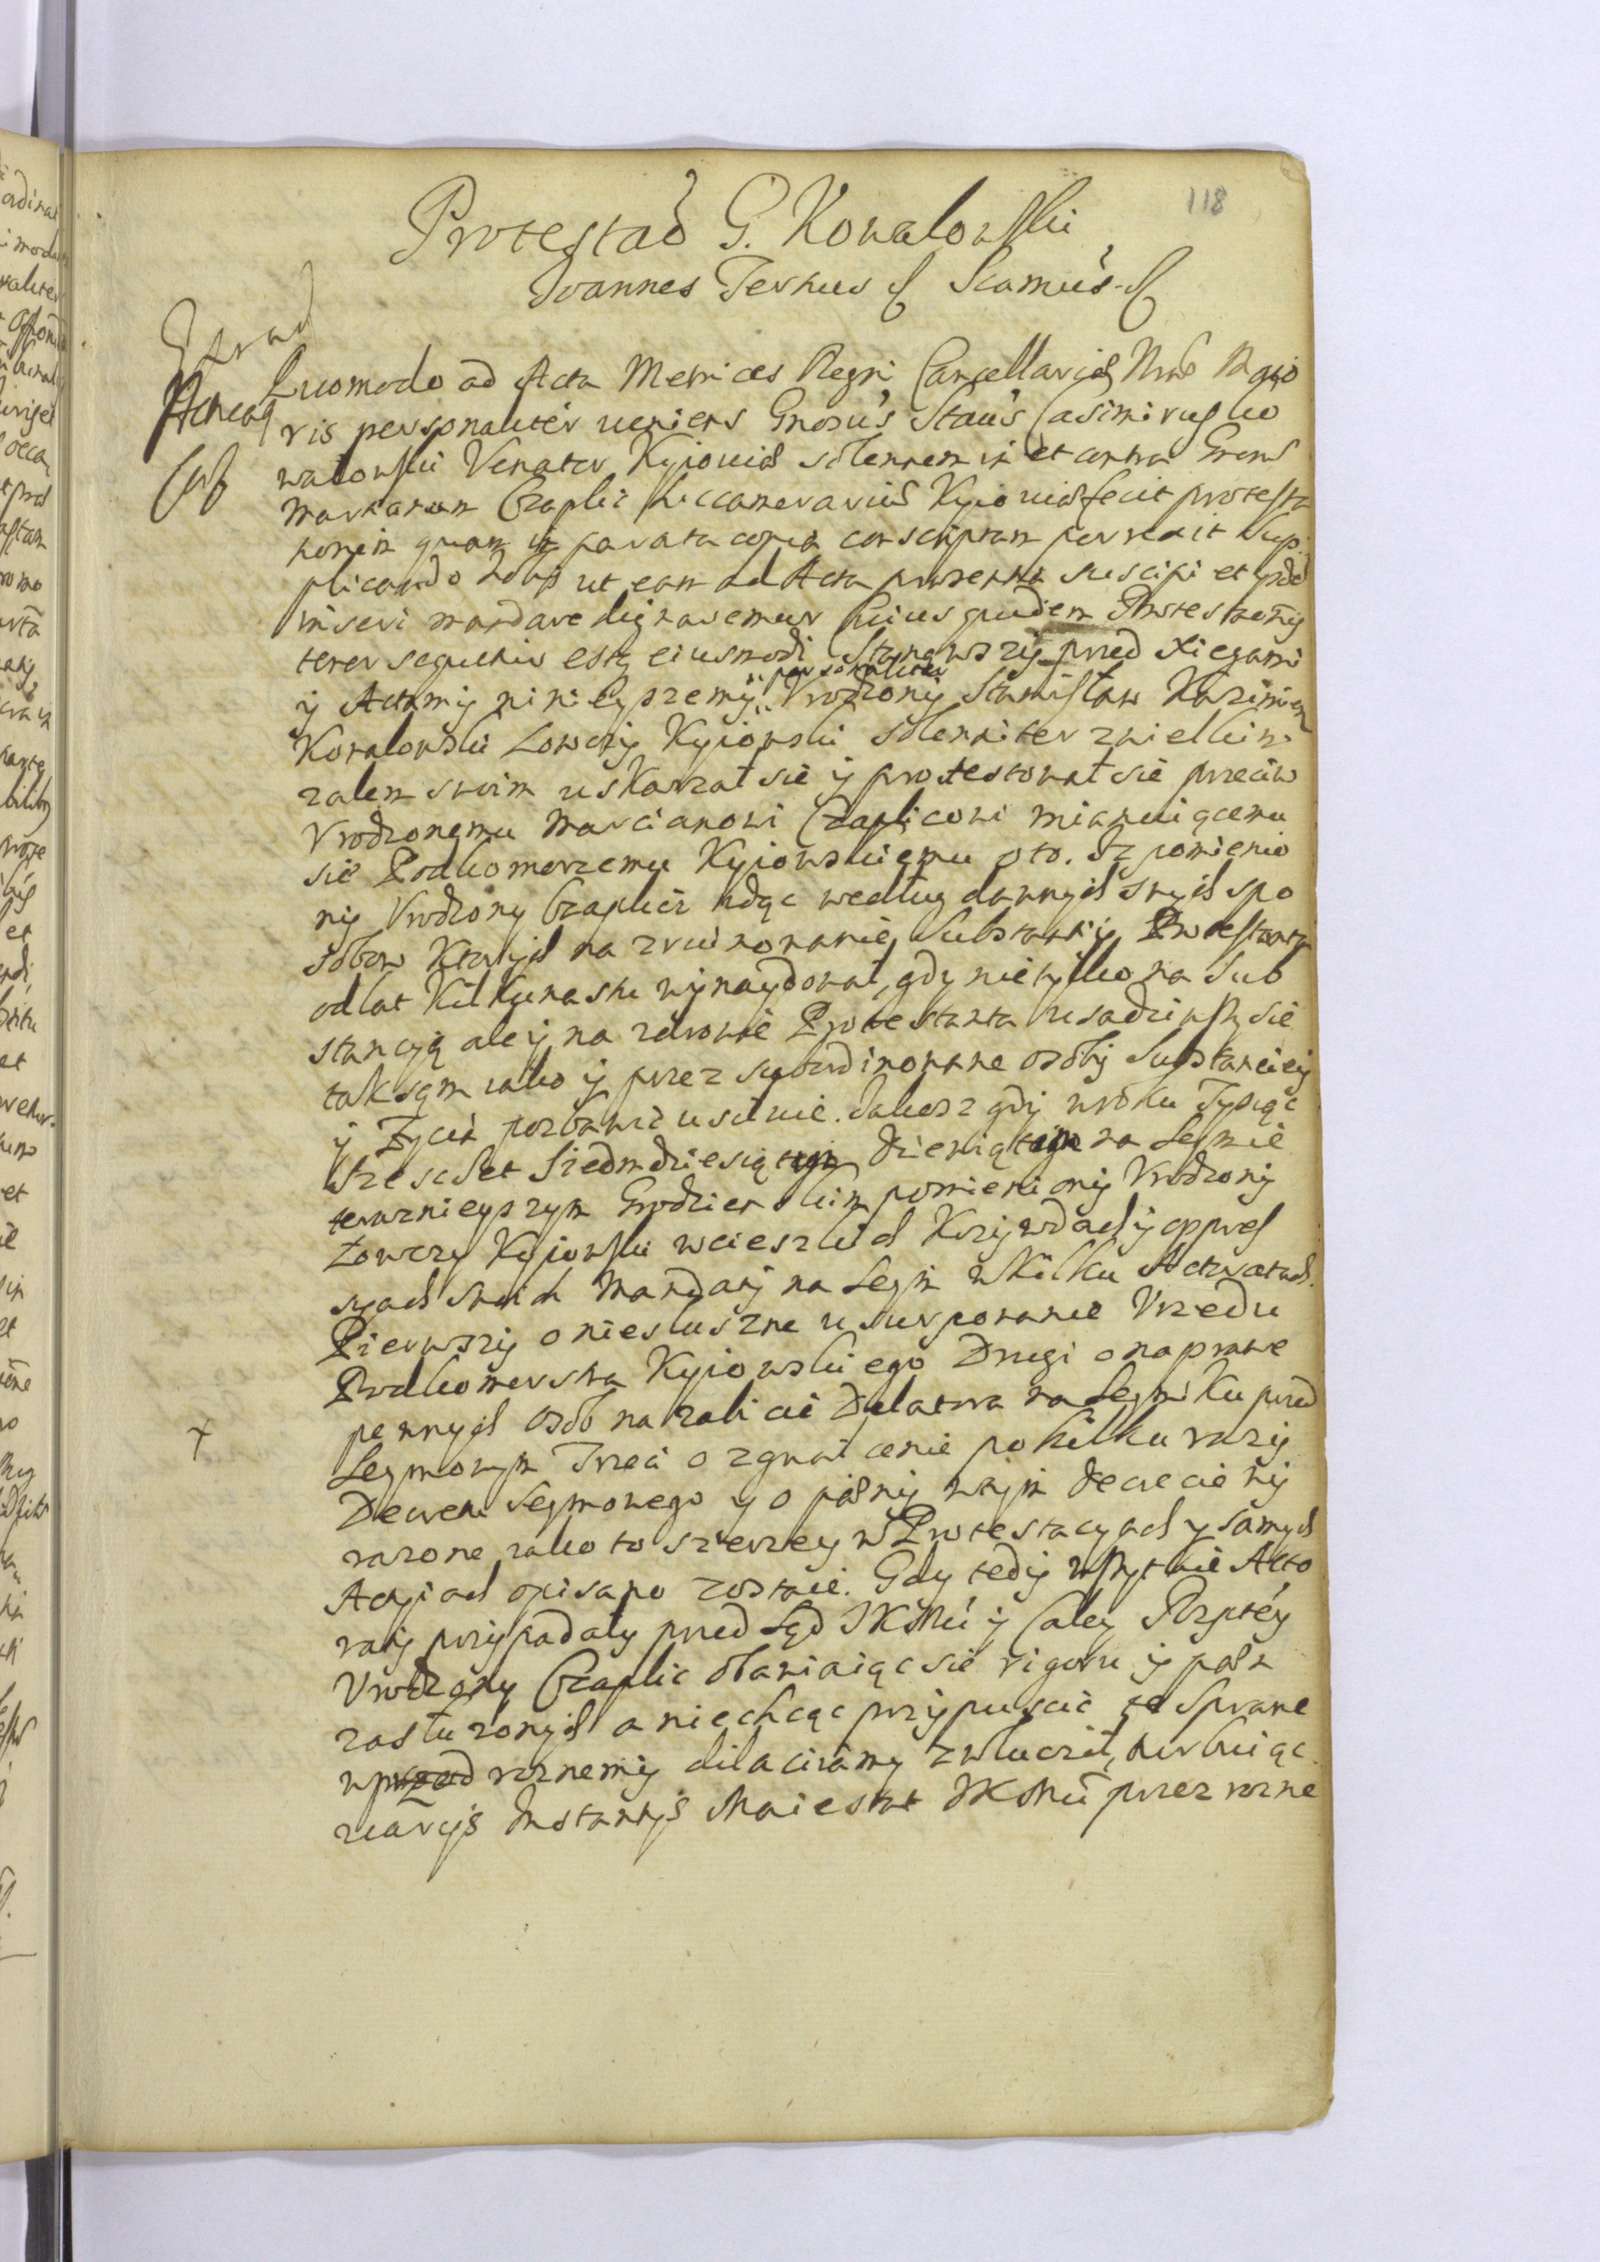 118
Protestaō G. Kowalowski
Joannes Tertius Scamus
Quomodo ad Acta Metrices Regni Cancellariae Nrae Majo
ris personaliter veniens Gnosus Staus Casimirus Ko
walowski Venator Kyioviae solennem in et contra Gnosum
Martianum Czaplic Succamerarium Kyioviae fecit protesta
tionem quam in parata copia conscriptam porrexit sup
plicando Nobis ut eam ad Acta praesentia suscipi et
inseri mandare dignaremur Cuius quidem Protestationis
tenor sequitur estq eiusmodi Stanowszy przed xiegami
y Actamy ninieyszemy personaliter Vrodzony Stanisław Kazimierz
Kowalowski Łowczy Kyiowski solenniter z wielkim
zalem swoim uskarzał sie y protestował sie przeciw
Vrodzonemu Marcianowi Czaplicowi mianuiącemu
sie Podkomorzemu Kyiowskiemu o to. Iz pomienio
ny Vrodzony Czaplic idąc według dawnych swych spo
sobow ktorych na zruinowanie Substantij Protestanta
od lat kilkunastu wynaydował, gdy nie tylko na Sub
stancyą ale y na zdrowie Protestanta usadziwszy sie
tak sam iako y przez subordinowane osoby Substanciey
y Zycia pozbawic usiłuie. Iakosz gdy w roku Tysiąc
Szescset Siedmdziesiątym dziewiątym na Seymie
teraznieyszym Grodzienskim pomieniony Vrodzony
Łowczy Kyiowski w cieszkich Krzywdach y oppres
syach swoich Mandaty na Seym w kilku Actoratach.
Pierwszy o niesłuszne usurpowanie Vrzedu
Podkomorstwa Kyiowskiego Drugi o naprawe
pewnych osob na zabicie Delatora na Seymiku przed
Seymowym Trzeci o zgwałcenie po kilku razy
Decretu Seymowego y o paeny w nym decrecie wy
razone iako to szerzey w Protestacyach y samych
Actyiach opisano zostaie. Gdy tedy wszytkie Acto
raty przypadały przed Sąd JKMci y Całey Rzptey
Vrodzony Czaplic obawiaiąc sie rigoru y paen
zasłuzonych a nie chcąc przypuscic te Sprawe
w przod roznemy dilaciamy zwłuczył, turbuiąc
variis Instantijs Maiestat JKMci przez rozne